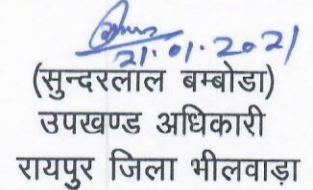 21.01.2021
(सुन्दरलाल बम्बोडा)
उपखण्ड अधिकारी
रायपुर जिला भीलवाड़ा